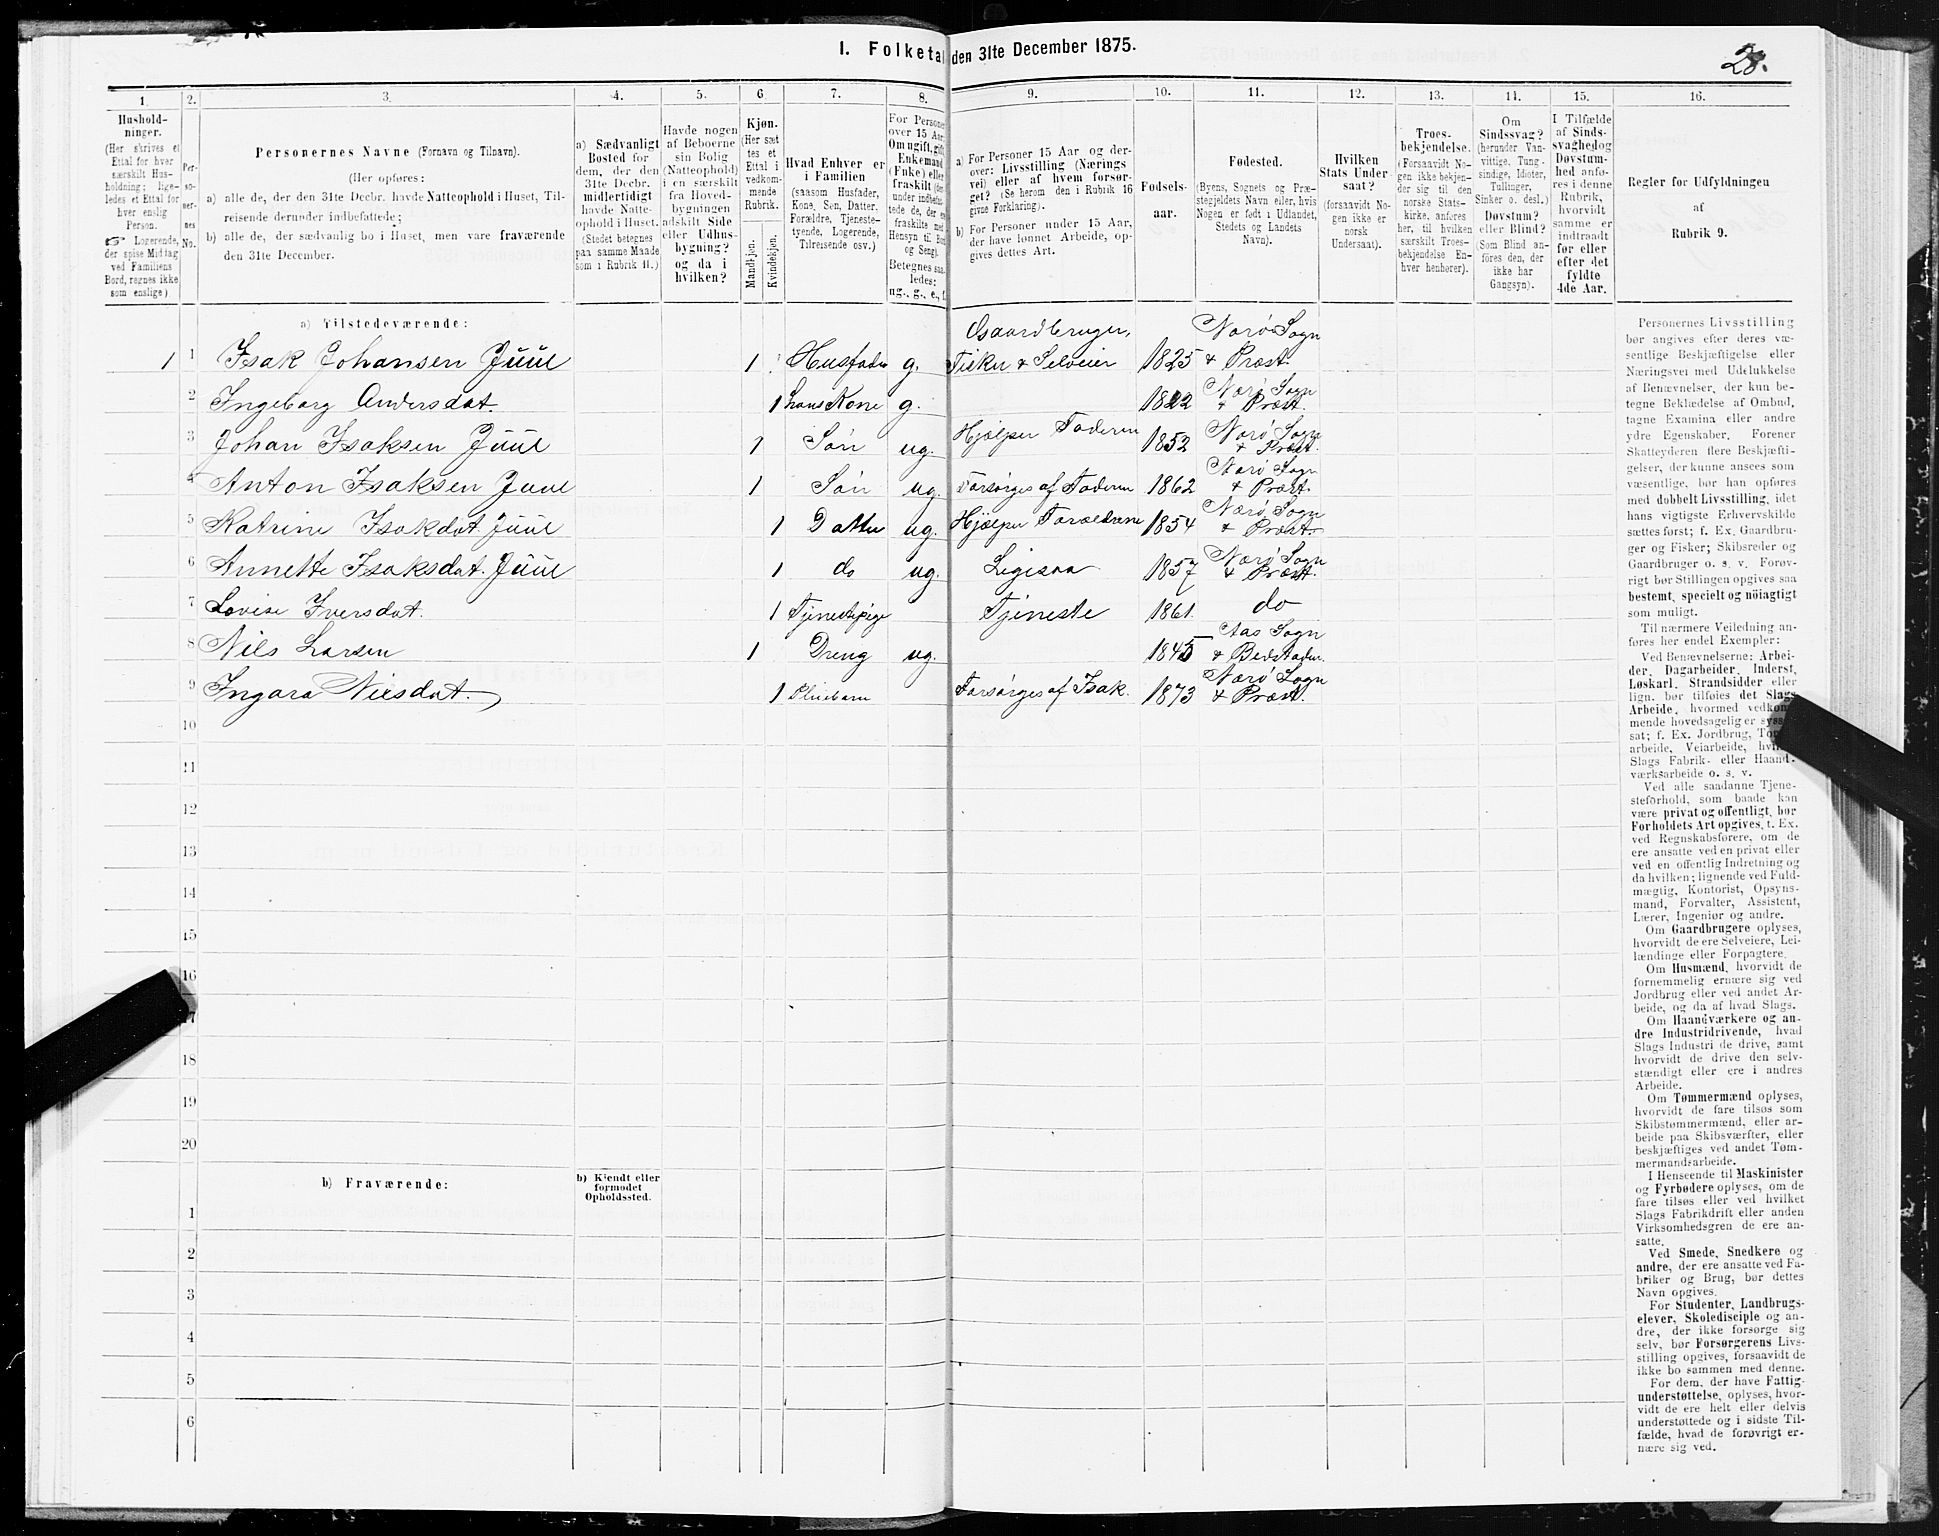 I. Folketal den 31te December 1875.
28.
1. 2. 3. 4. 5. 6. 7. 8. 9. 10. 11. 12. 13. 14. 15. 16.
Hushold-
ninger.
(Her skrives et
Ettal for hver
særskilt Hus-
holdning; lige-
ledes et Ettal for
hver enslig
Person.
☞ Logerende,
der spise Middag
ved Familiens
Bord, regnes ikke
som enslige.)
Per-
so-
ner-
nes
No.
Personernes Navne (Fornavn og Tilnavn).
(Her opføres:
a) alle de, der den 31te Decbr. havde Natteophold i Huset, Til-
reisende derunder indbefattede;
b) alle de, der sædvanlig bo i Huset, men vare fraværende
den 31te December.
a) Sædvanligt
Bosted for
dem, der den
31te Decbr.
midlertidigt
havde Natte-
ophold i Huset.
(Stedet betegnes
paa samme Maade
som i Rubrik 11.)
Havde nogen
af Beboerne
sin Bolig
(Natteophold)
i en særskilt
fra Hoved-
bygningen
adskilt Side-
eller Udhus-
bygning?
og da i
hvilken?
Kjøn.
(Her sæt-
tes et
Ettal i
vedkom-
mende
Rubrik.
Mandkjøn.
Kvindekjøn.
Hvad Enhver er
i Familien
(saasom Husfader,
Kone, Søn, Datter,
Forældre, Tjeneste-
tyende, Logerende,
Tilreisende osv.)
For Personer
over 15 Aar:
Om ugift, gift,
Enkemand
(Enke) eller
fraskilt (der-
under indbefat-
tede de, der ere
fraskilte med
Hensyn til Bord
og Seng).
Betegnes saa-
ledes:
ug., g., e., f.
a) For Personer 15 Aar og der-
over: Livsstilling (Nærings-
vei) eller af hvem forsør-
get? (Se herom den i Rubrik 16
givne Forklaring).
b) For Personer under 15 Aar,
der have lønnet Arbeide, op-
gives dettes Art.
Fødsels-
aar.
Fødested.
(Byens, Sognets og Præ-
stegjeldets Navn eller, hvis
Nogen er født i Udlandet,
Stedets og Landets
Navn).
Hvilken
Stats Under-
saat?
(forsaavidt No-
gen ikke er
norsk
Undersaat).
Troes-
bekjendelse.
(Forsaavidt No-
gen ikke bekjen-
der sig til den
norske Stats-
kirke, anføres
her, til hvilken
særskilt Troes-
bekjendelse En-
hver henhører).
Om
Sindssvag?
(herunder Van-
vittige, Tung-
sindige, Idioter,
Tullinger,
Sinker o. desl.)
Døvstum?
eller Blind?
(Som Blind an-
føres den, der
ikke har
Gangsyn).
I Tilfælde
af Sinds-
svaghed og
Døvstum-
hed anfø-
res i denne
Rubrik,
hvorvidt
samme er
indtraadt
før eller
efter det
fyldte
4de Aar.
Regler for Udfyldningen
af
Rubrik 9.
a) Tilstedeværende:
1 1 Isak Johansen Juul 1 Husfader g. Gaardbruger, Fisker & Selveier 1825 Nærö Sogn & Præst.
2 Ingeborg Andersdat. 1 hans Kone g. 1822 Nærö Sogn & Præst.
3 Johan Isaksen Juul 1 Sön ug. Hjælper Faderen 1852 Nærö Sogn & Præst.
4 Anton Isaksen Juul 1 Sön ug. Forsørges af Faderen 1862 Nærö Sogn & Præst.
5 Katrine Isakdat. Juul 1 Datter ug. Hjælper Forældrene 1854 Nærö Sogn & Præst.
6 Annette Isaksdat. Juul 1 do ug. Ligesaa 1857 Nærö Sogn & Præst.
7 Lovise Iversdat. 1 Tjenestepige Tjeneste 1861. do
8 Nils Larsen 1 Dreng ug. 1845 Aas Sogn & Bedstaden.
9 Ingara Nilsdat. 1 Pleiebarn Forsørges af Isak. 1873 Nærö Sogn & Præst.
10
11
12
13
14
15
16
17
18
19
20
b) Fraværende:
b) Kjendt eller
formodet
Opholdssted.
1
2
3
4
5
6
Personernes Livsstilling
bør angives efter deres væ-
sentlige Beskjæftigelse eller
Næringsvei med Udelukkelse
af Benævnelser, der kun be-
tegne Beklædelse af Ombud,
tagne Examina eller andre
ydre Egenskaber. Forener
Skatteyderen flere Beskjæfti-
gelser, der kunne ansees som
væsentlige, bør han opføres
med dobbelt Livsstilling, idet
hans vigtigste Erhvervskilde
sættes først; f. Ex. Gaardbru-
ger og Fisker; Skibsreder og
Gaardbruger o. s. v. Forøv-
rigt bør Stillingen opgives saa
bestemt, specielt og nöiagtigt
som muligt.
Til nærmere Veiledning an-
føres her endel Exempler:
Ved Benævnelserne: Arbei-
der, Dagarbeider, Inderst,
Løskarl, Strandsidder eller
lign. bør tilføies det Slags
Arbeide, hvormed vedkom-
mende hovedsagelig er syssel-
sat; f. Ex. Jordbrug, Tomt-
arbeide, Veiarbeide, hvilket
Slags Fabrik- eller Haand-
værksarbeide o. s. v.
Ved alle saadanne Tjene-
steforhold, som baade kan
være privat og offentligt, bør
Forholdets Art opgives, t. Ex.
ved Regnskabsførere, om de
ere ansatte ved en privat eller
ved en offentlig Indretning og
da hvilken; lignende ved Fuld-
mægtig, Kontorist, Opsyns-
mand, Forvalter, Assistent,
Lærer, Ingeniør og andre.
Om Gaardbrugere oplyses,
hvorvidt de ere Selveiere, Lei-
lændinge eller Forpagtere.
Om Husmænd, hvorvidt de
fornemmelig ernære sig ved
Jordbrug eller ved andet Ar-
beide, og da af hvad Slags.
Om Haandværkere og an-
dre Industridrivende, hvad
Slags Industri de drive, samt
hvorvidt de drive den selv-
stændigt eller ere i andres
Arbeide.
Om Tømmermænd oplyses,
hvorvidt de fare tilsøs som
Skibstømmermænd, eller ar-
beide paa Skibsværfter, eller
beskjæftiges ved andet Tøm-
mermandsarbeide.
I Henseende til Maskinister
og Fyrbødere oplyses, om de
fare tilsøs eller ved hvilket
Slags Fabrikdrift eller anden
Virksomhedsgren de ere an-
satte.
Ved Smede, Snedkere og
andre, der ere ansatte ved Fa-
briker og Brug, bør dettes
Navn opgives.
For Studenter, Landbrugs-
elever, Skoledisciple og an-
dre, der ikke forsørge sig
selv, bør Forsørgerens Livs-
stilling opgives, forsaavidt de
ikke bo sammen med denne.
For dem, der have Fattig-
understøttelse, oplyses, hvor-
vidt de ere helt eller delvis
understøttede og i sidste Til-
fælde, hvad de forøvrigt er-
nære sig ved.